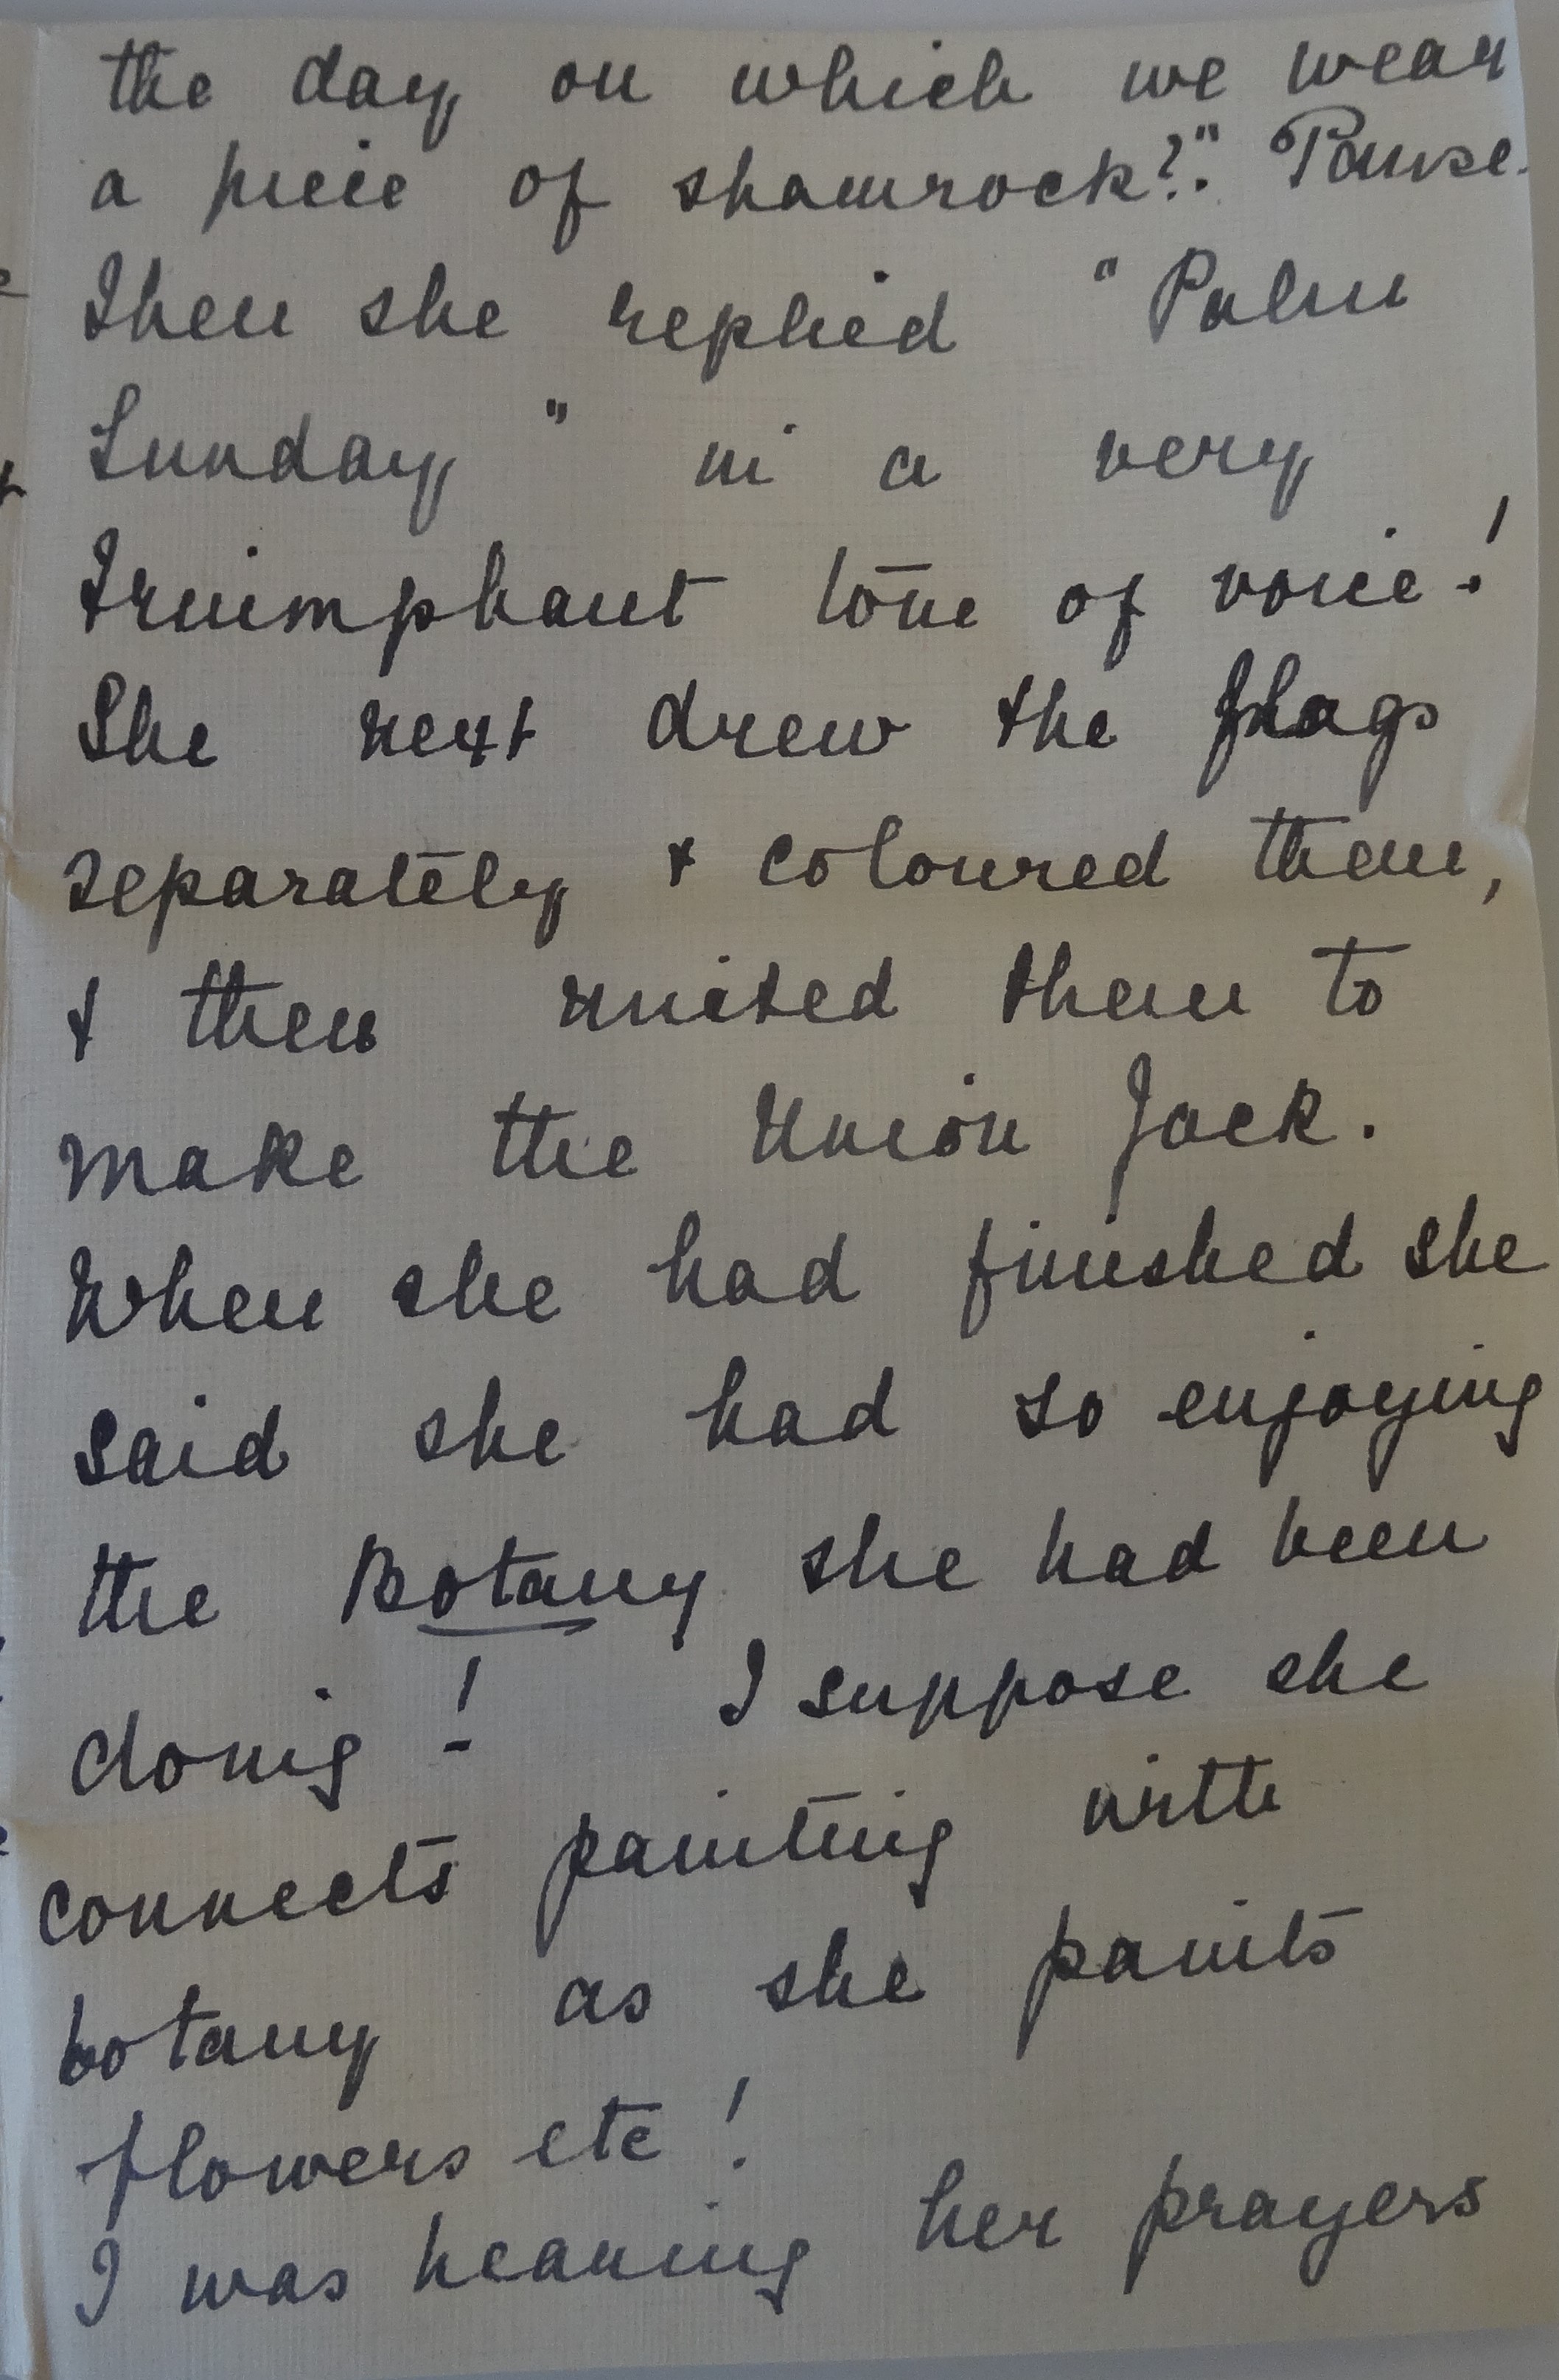 the day on which we wear
a piece of shamrock?". Pause.
Then she replied "Palm
Sunday" in a very
triumphant tone of voice!
She next drew the flags
separately & coloured them,
& then united them to
make the Union Jack.
When she had finished she
said she had so enjoying
the Botany she had been
doing! I suppose she
connects painting with
botany as she paints
flowers etc!
I was hearing her prayers